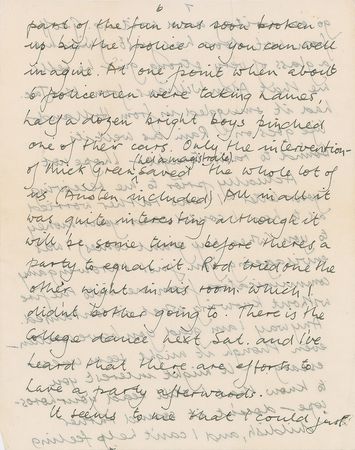 6
part of the fun was soon broken
up by the police as you can well
imagine. At one point when about
6 policemen were taking names,
half a dozen bright boys pinched
one of their cars. Only the intervention
of Green (he's a magistrate) saved the whole lot of
us (Austen included) All in all it
was quite interesting although it
will be some time before there's a
party to equal it. Rod tried one the
other night in his room which I
didn't bother going to. There is the
College dance next Sat. and I've
heard that there are efforts to
have a party afterwards.
It seems to me that I could just